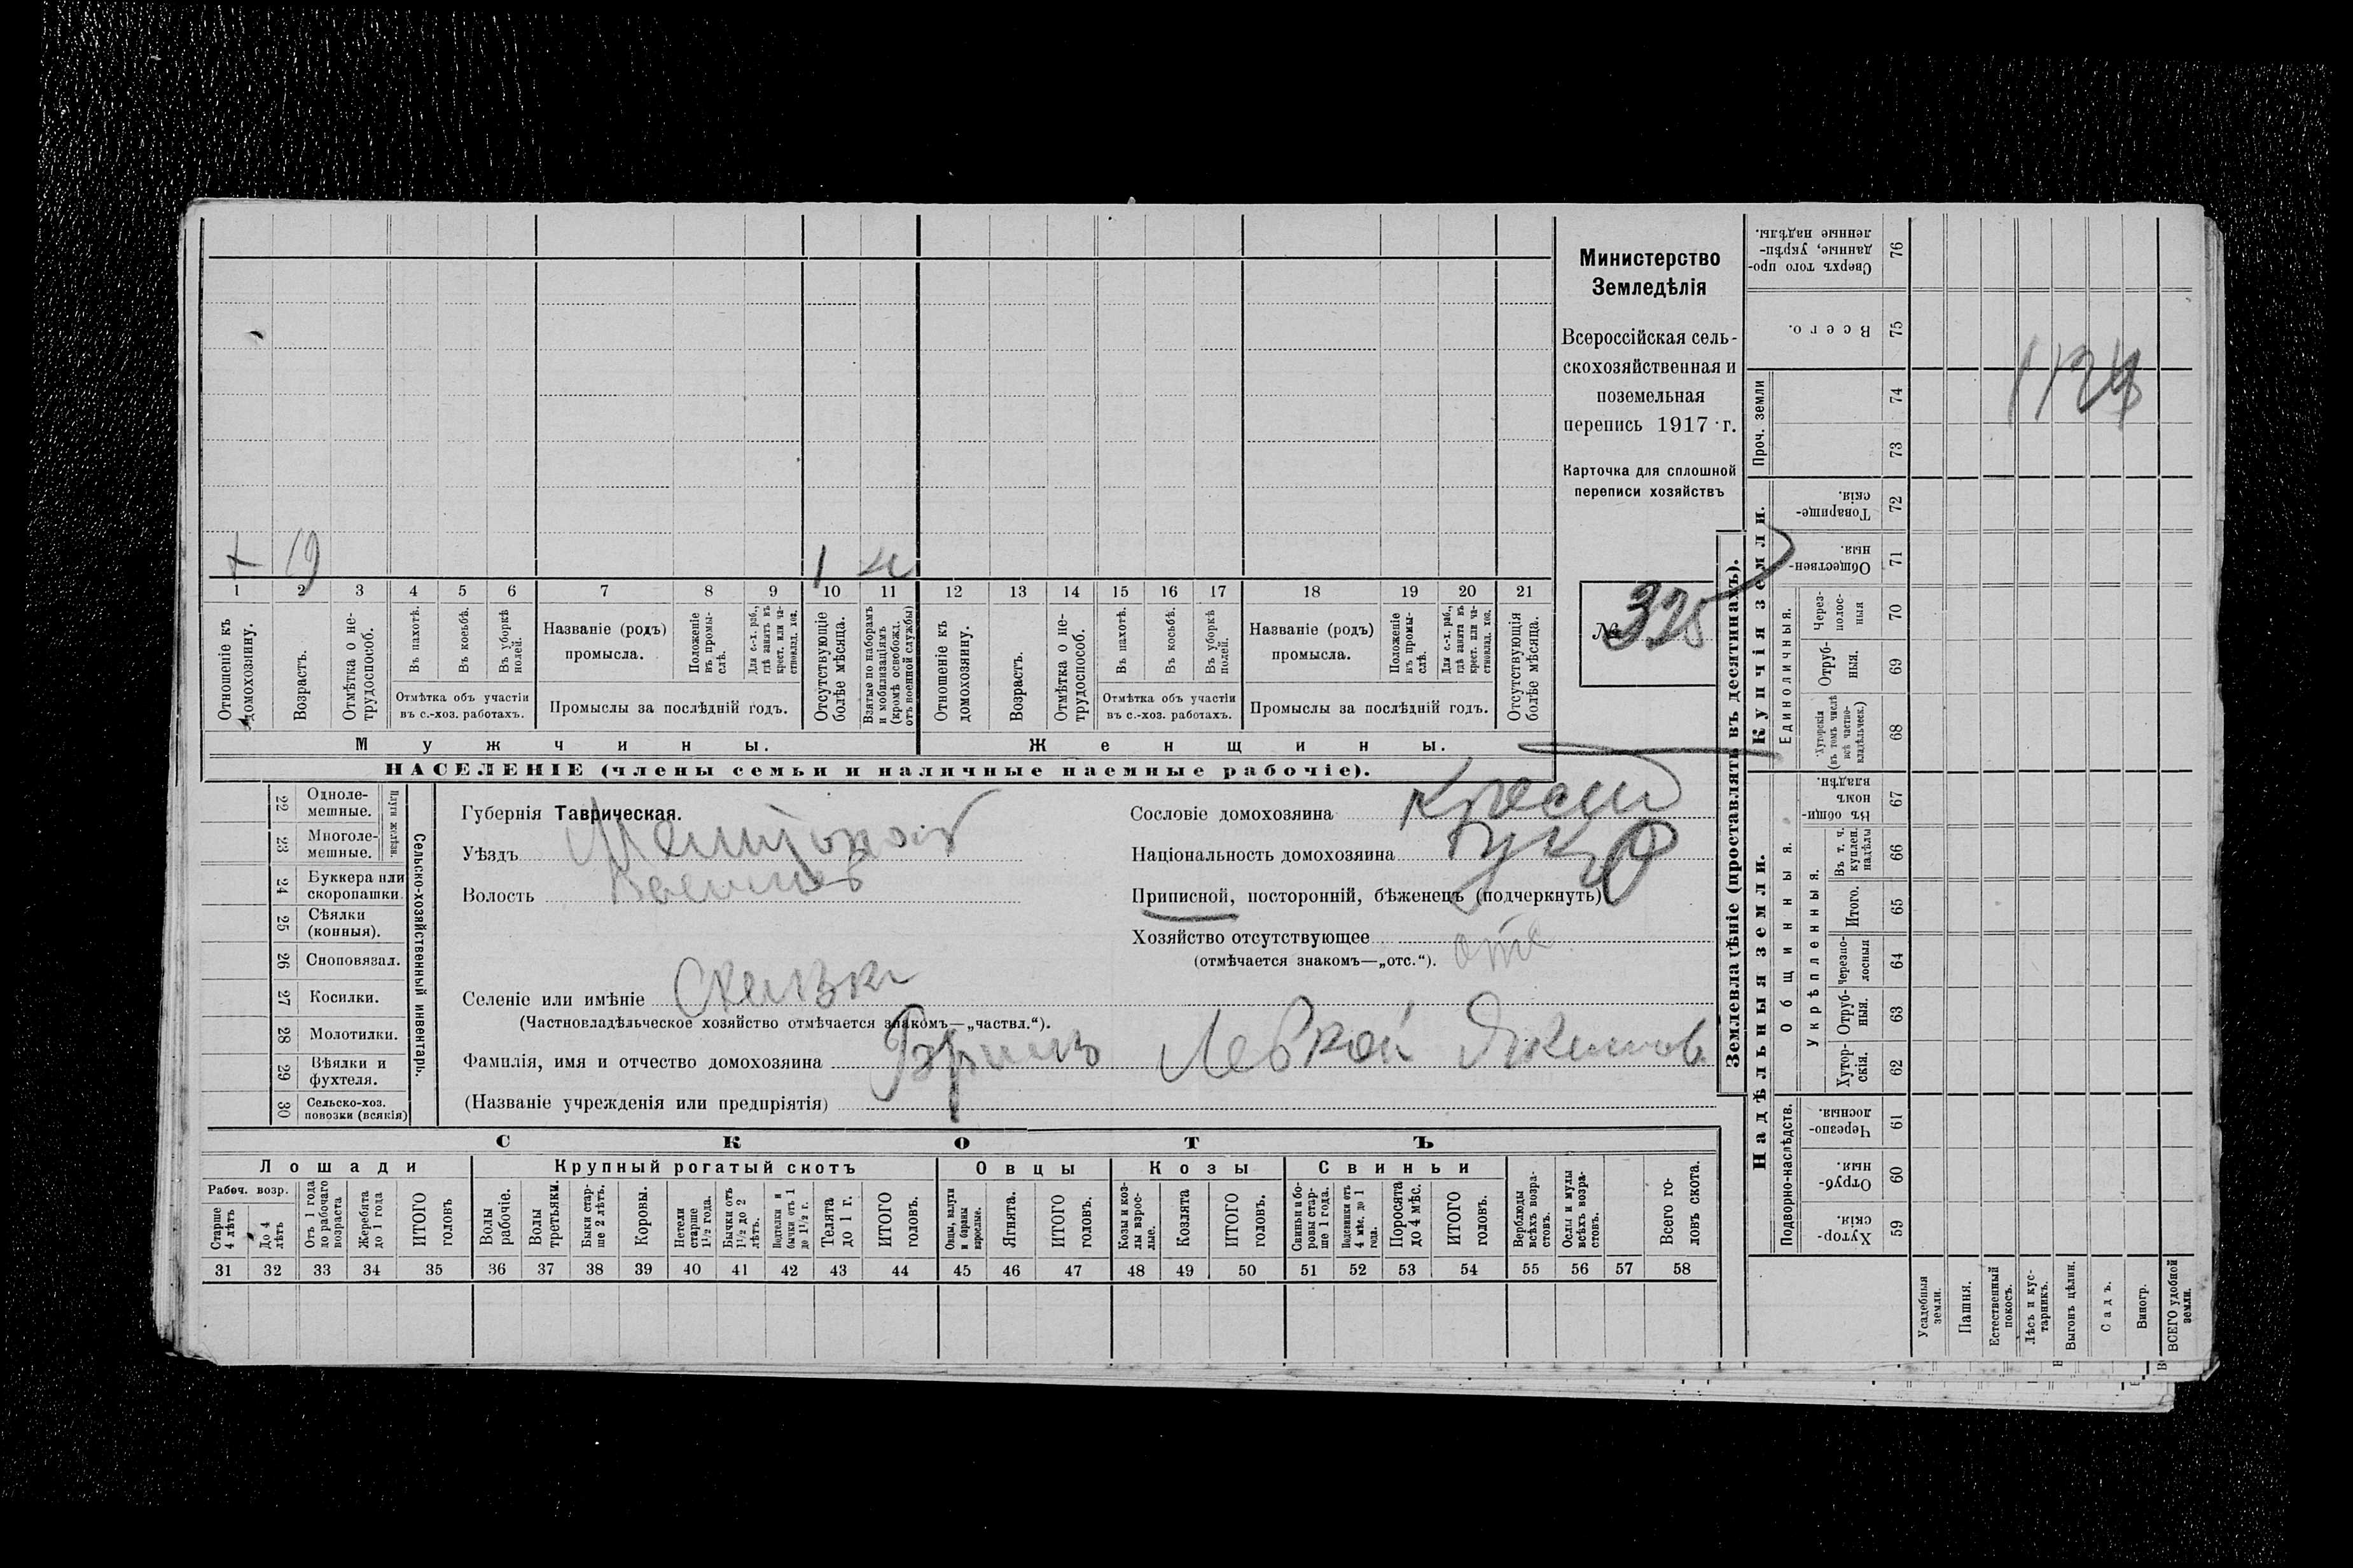 Министерство
Земледѣлія
Всероссійская сель-
скохозяйственная и
поземельная
перепись 1917 г.
Карточка для сплошной
переписи хозяйствъ
№ 325
х 19 1
1 2 3 4 5 6 7 8 9 10 11 12 13 14 15 16 17 18 19 20 21
Отношеніе къ домохозяину.
Возрастъ.
Отмѣтка о не-трудоспособ.
Въ пахотѣ.
Въ косьбѣ.
Въ уборкѣ полей.
Отмѣтка объ участіи
въ с.-хоз. работахъ.
Названіе (родъ)
промысла.
Положеніе въ промы-слѣ.
Для с.-х. раб., гдѣ занятъ въ крест. или ча-стновлад. хоз.
Промыслы за послѣдній годъ.
Отсутствующіе болѣе мѣсяца.
Взятые по наборамъ и мобилизаціямъ (кромѣ освобожд. отъ военной службы)
Отношеніе къ домохозяину.
Возрастъ.
Отмѣтка о не-трудоспособ.
Въ пахотѣ.
Въ косьбѣ.
Въ уборкѣ полей.
Отмѣтка объ участіи
въ с.-хоз. работахъ.
Названіе (родъ)
промысла.
Положеніе въ промы-слѣ.
Для с.-х. раб., гдѣ занята въ крест. или ча-стновлад. хоз.
Промыслы за послѣдній годъ.
Отсутствующія болѣе мѣсяца.
Мужчины.
Женщины.
НАСЕЛЕНІЕ (члены семьи и наличные наемные рабочіе).
Сельско-хозяйственный инвентарь.
Плуги желѣзн.
22 Одноле-мешные.
23 Многоле-мешные.
24 Буккера или скоропашки.
25 Сѣялки (конныя).
26 Сноповязал.
27 Косилки.
28 Молотилки.
29 Вѣялки и фухтеля.
30 Сельско-хоз. повозки (всякія)
Губернія Таврическая.
Уѣздъ
Волость
Селеніе или имѣніе
(Частновладѣльческое хозяйство отмѣчается знакомъ—„частвл.“).
Фамилія, имя и отчество домохозяина Левкой
(Названіе учрежденія или предпріятія)
Сословіе домохозяина
Національность домохозяина
Приписной, посторонній, бѣженецъ (подчеркнуть)
Хозяйство отсутствующее отс
(отмѣчается знакомъ—„отс.“).
СКОТЪ
Лошади
Крупный рогатый скотъ
Овцы
Козы
Свиньи
Рабоч. возр.
Старше 4 лѣтъ
До 4 лѣтъ
Отъ 1 года до рабочаго возраста
Жеребята до 1 года
ИТОГО головъ
Волы рабочіе.
Волы третьяки.
Быки стар-ше 2 лѣтъ.
Коровы.
Нетели старше 1½ года.
Бычки отъ 1½ до 2 лѣтъ.
Подтелки и бычки отъ 1 до 1½ г.
Телята до 1 г.
ИТОГО головъ.
Овцы, валухи и бараны взрослые.
Ягнята.
ИТОГО головъ.
Козы и коз-лы взрос-лые.
Козлята
ИТОГО головъ.
Свиньи и бо-ровы стар-ше 1 года.
Подсвинки отъ 4 мѣс. до 1 года.
Поросята до 4 мѣс.
ИТОГО головъ.
Верблюды всѣхъ возра-стовъ.
Ослы и мулы всѣхъ возра-стовъ.
Всего го-ловъ скота.
31 32 33 34 35 36 37 38 39 40 41 42 43 44 45 46 47 48 49 50 51 52 53 54 55 56 57 58
Землевладѣніе (проставлять въ десятинахъ).
Купчія земли.
Надѣльныя земли.
Проч. земли
Единоличныя.
Общинныя.
Укрѣпленныя.
Подворно-наслѣдств.
Сверхъ того про-данные, укрѣп-ленные надѣлы. 76
Всего. 75
74
73
Товарище-скія. 72
Обществен-ныя. 71
Через-полос-ныя 70
Отруб-ныя. 69
Хуторскія (въ томъ числѣ всѣ частно-владѣльческ.) 68
Въ общин-номъ владѣн. 67
Въ т. ч. куплен. надѣлы 66
Итого. 65
Черезпо-лосныя 64
Отруб-ныя. 63
Хутор-скія. 62
Черезпо-лосныя. 61
Отруб-ныя. 60
Хутор-скія. 59
Усадебныя земли.
Пашня.
Естественный покосъ.
Лѣсъ и кус-тарникъ.
Выгонъ цѣлин.
Садъ.
Виногр.
ВСЕГО удобной земли.